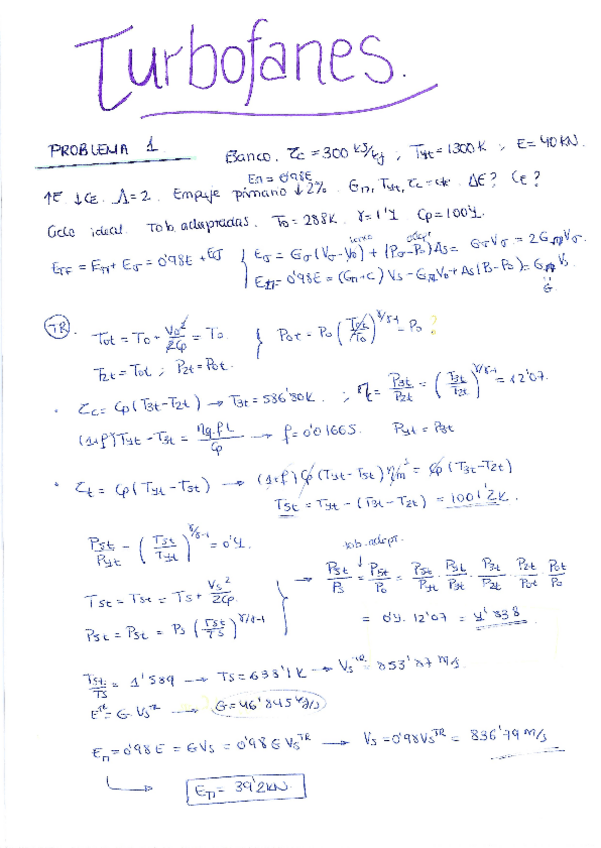 Turbofanes.
PROBLEMA 1 Banco. τc = 300 kJ/kg ; T4t = 1300K ; E = 40 KN.
Eπ = 0'98E
↑E ↓CE. Λ = 2. Empuje primario ↓2%. Gπ, T4t, τc = cte. ΔE? CE?
Ciclo ideal. Tob. adaptadas. T0 = 288K. γ = 1'4 Cp = 1004.
ETF = Eπ + Eσ = 0'98E + Eσ { Eσ = Gσ(Vσ - V0) + (Pσ - P0)Aσ = GσVσ = 2GπVσ.
Eπ = 0'98E = (Gπ + C) Vs - GπV0 + As(Ps - P0) = Gπ Vs
G
TR. T0t = T0 + V0²/2Cp = T0. { P0t = P0 (T0t/T0)^γ/γ-1 = P0 ?
T2t = T0t ; P2t = P0t.
• τc = Cp (T3t - T2t) → T3t = 586'80K. ; πc = P3t/P2t = (T3t/T2t)^γ/γ-1 = 12'07.
(1+f) T4t - T3t = ηq f L/Cp → f = 0'01665. P4t = P3t
• τt = Cp (T4t - T5t) → (1+f) Cp (T4t - T5t) ηm = Cp (T3t - T2t)
T5t = T4t - (T3t - T2t) = 1001'2K.
P5t/P4t = (T5t/T4t)^γ/γ-1 = 0'4.
tob. adapt.
T5t = T5t = Ts + Vs²/2Cp
P5t = P5t = Ps (T5t/Ts)^γ/γ-1
→ P5t/Ps = P5t/P0 = P5t/P4t · P4t/P3t · P3t/P2t · P2t/P0t · P0t/P0
= 0'4. 12'07 = 4'838
T5t/Ts = 1'589 → Ts = 633'1K → Vs^TR = 853'87 m/s.
E^TR = G · Vs^TR → G = 46'845 kg/s
Eπ = 0'98E = GVs = 0'98 G Vs^TR → Vs = 0'98Vs^TR = 836'79 m/s
Eπ = 39'2KN.